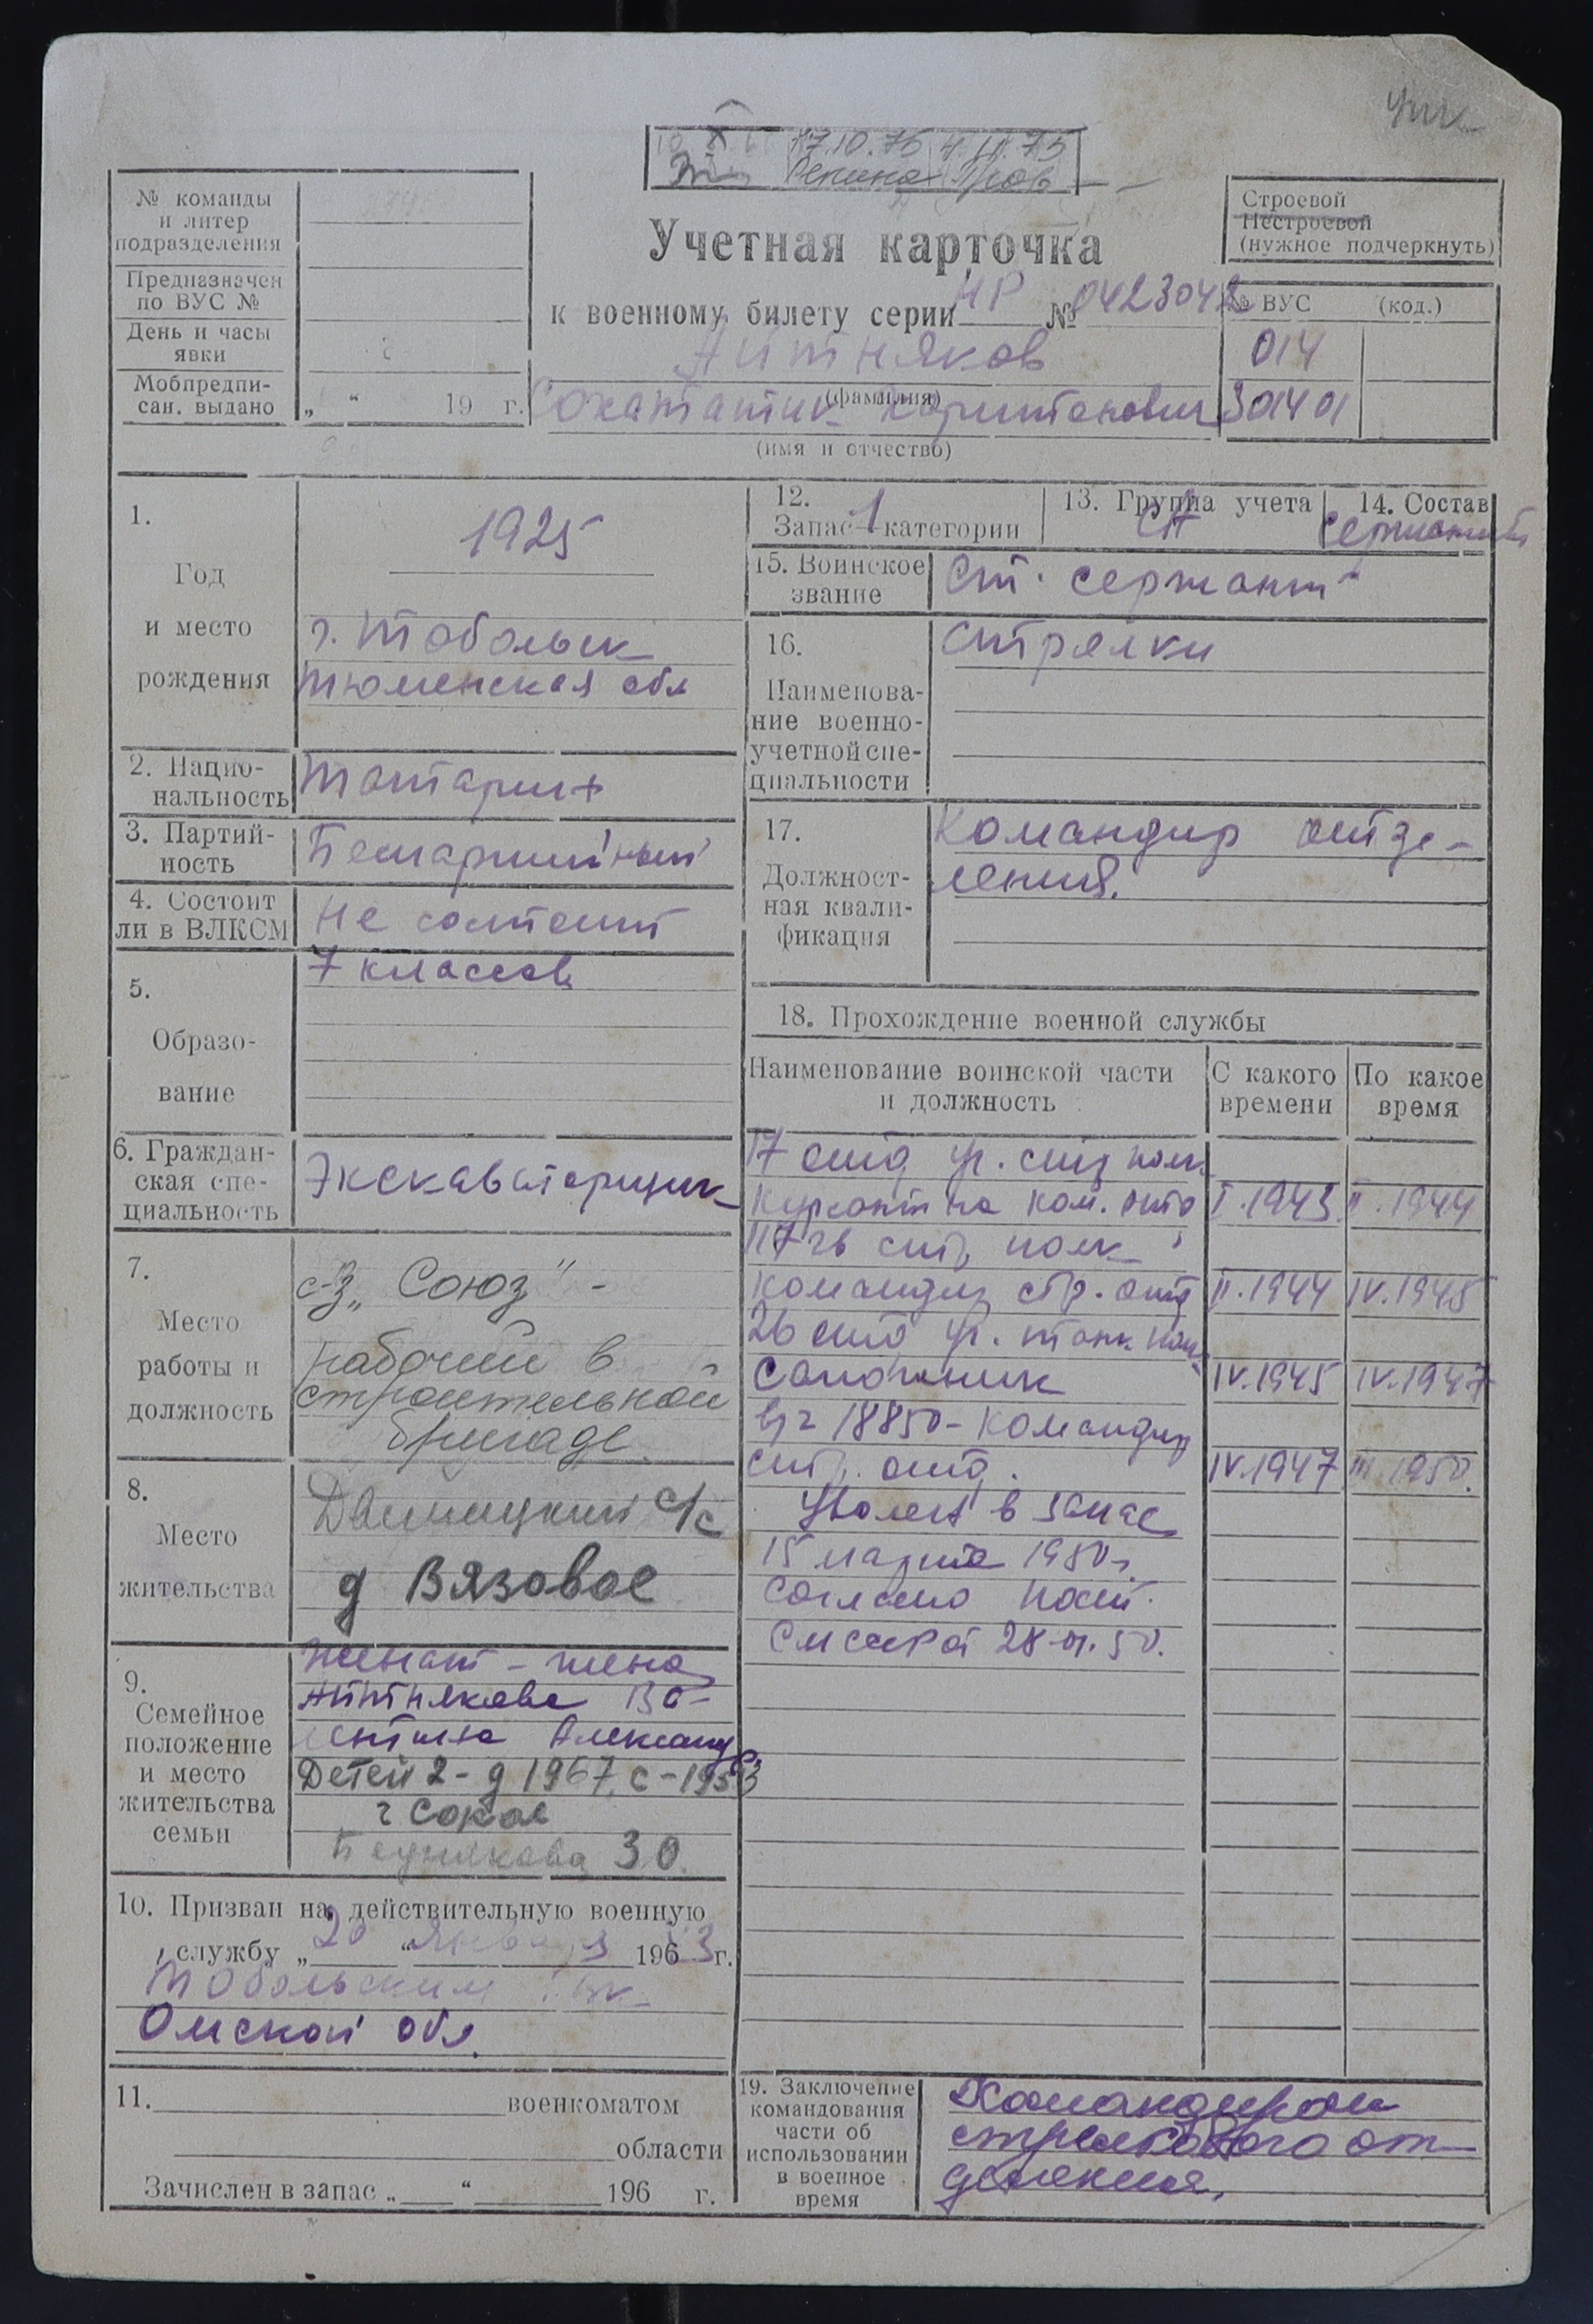 17.10.75 4.III.75
Репина
№ команды
и литер
подразделения
Предназначен
по ВУС №
День и часы
явки
Мобпредпи-
сан. выдано „ “ 19 г.
Строевой
Нестроевой
(нужное подчеркнуть)
Учетная карточка
к военному билету серии НР № 0423042
Айтняков
(фамилия)
(имя и отчество)
№ ВУС (код.)
014
301401
1.
Год
и место
рождения
1925
г. Тобольск
Тюменская обл
2. Нацио-
нальность
Татарин
3. Партий-
ность
Беспартийный
4. Состоит
ли в ВЛКСМ
Не состоит
5.
Образо-
вание
7 классов
6. Граждан-
ская спе-
циальность
Экскаваторщик
7.
Место
работы и
должность
с-з „Союз" -
рабочий в
строительной
бригаде
8.
Место
жительства
с/с
д Вязовое
9.
Семейное
положение
и место
жительства
семьи
Женат - жена
Айтнякова Ва-
лентина Александ
Детей 2 - д 1967, с -
г Сокол
30.
10. Призван на действительную военную
службу „20 “ января 1963 г.
Тобольским
Омской обл.
11. военкоматом
области
Зачислен в запас „ “ 196 г.
12.
Запас 1 категории
13. Группа учета
СА
14. Состав
сержантский
15. Воинское
звание
Ст. сержант
16.
Наименова-
ние военно-
учетной спе-
циальности
Стрелки
17.
Должност-
ная квали-
фикация
Командир отде-
ления.
18. Прохождение военной службы
Наименование воинской части
и должность
С какого
времени
По какое
время
17 отд уч. стр полк
Курсант на ком. отд I.1943 II.1944
117 гв стр, полк
командир стр. отд II.1944 IV.1945
26 отд уч. танк полк
Сапожник IV.1945 IV.1947
в/ч 18850 - командир
стр. отд. IV.1947 III.1950.
Уволен в запас
15 марта 1950г.
Согласно пост.
СМ СССР от 28-01.50.
19. Заключение
командования
части об
использовании
в военное
время
Командиром
стрелкового от-
деления,